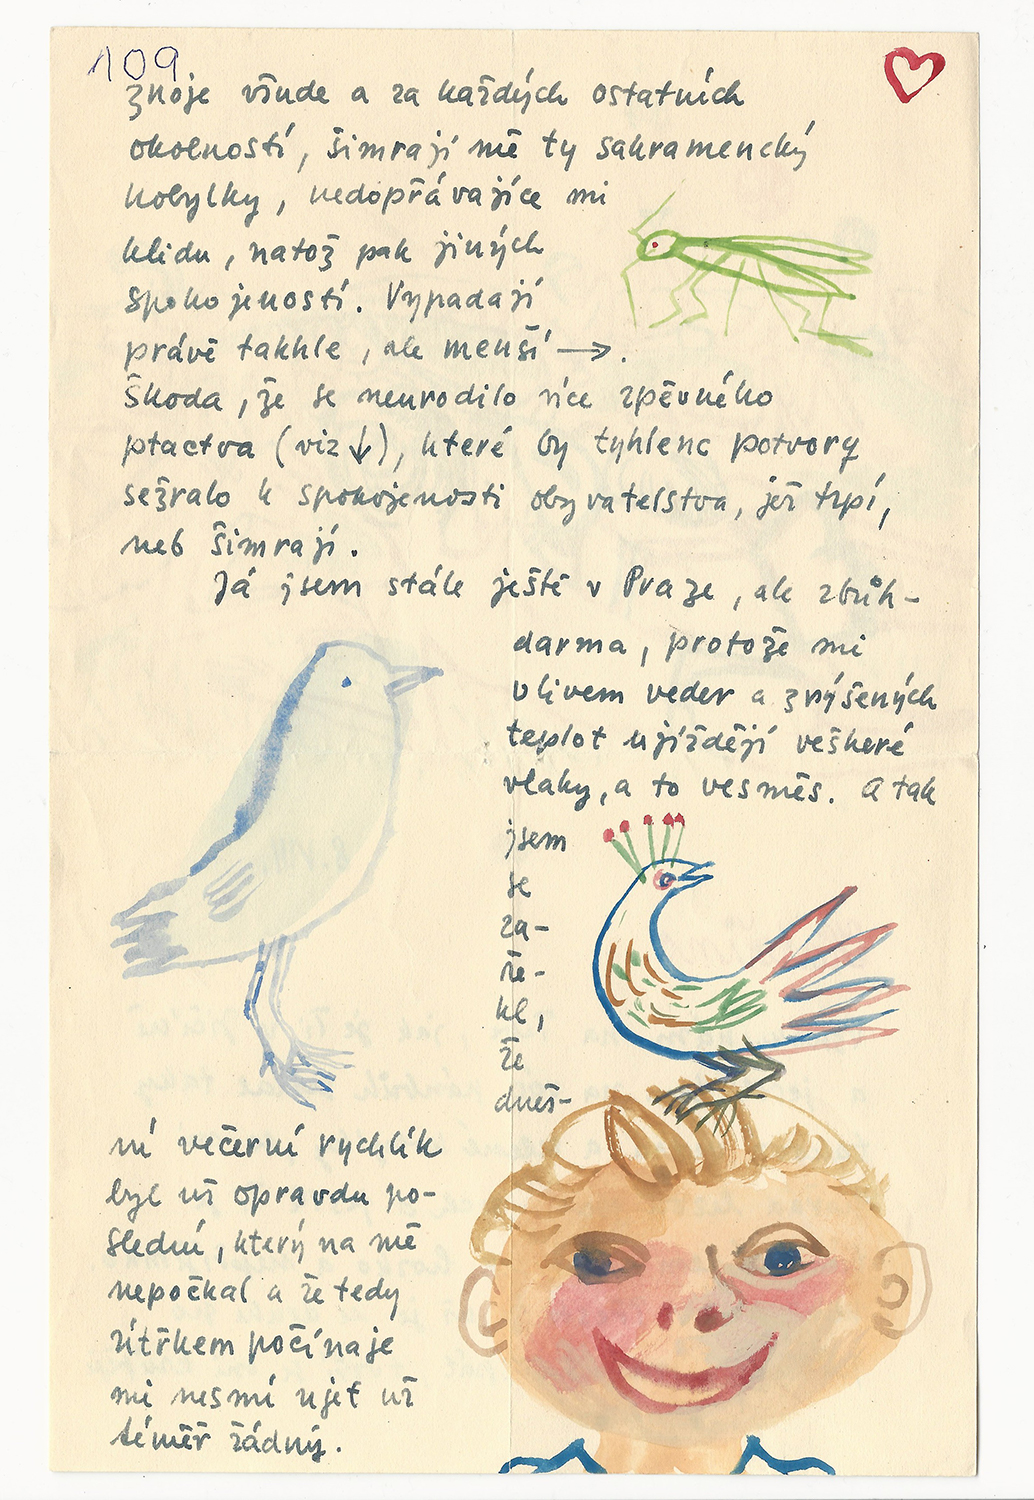 109
znoje všude a za každých ostatních
okolností, šimrají mě ty sakramencký
kobylky, nedopřávajíce mi
klidu, natož pak jiných
spokojeností. Vypadají
právě takhle, ale menší →.
Škoda, že se neurodilo více zpěvného
ptactva (viz ↓), které by tyhlenc potvory
sežralo k spokojenosti obyvatelstva, jež trpí,
neb šimrají.
Já jsem stále ještě v Praze, ale zbůh-
darma, protože mi
vlivem veder a zvýšených
teplot ujíždějí veškeré
vlaky, a to vesměs. A tak
jsem
se
za-
ře-
kl,
že
dneš-
ní večerní rychlík
byl už opravdu po-
slední, který na mě
nepočkal a že tedy
zítřkem počínaje
mi nesmí ujet už
téměř žádný.